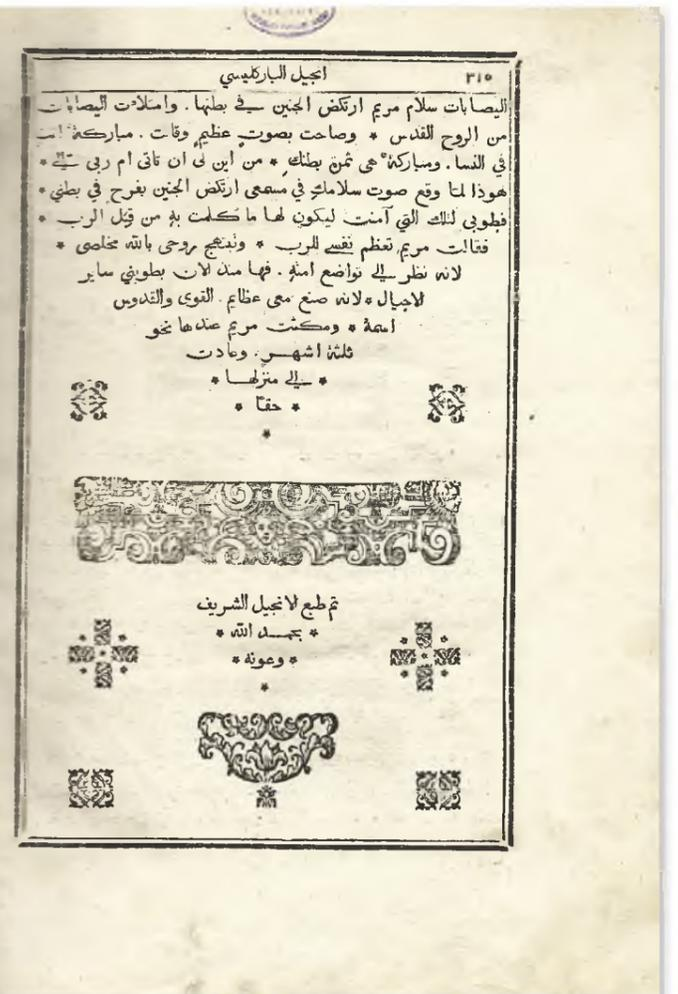 ٣١٥
انجيل الباركليسي
اليصابات سلام مريم ارتكض الجنين في بطنها . وامتلات اليصابات
من الروح القدس * وصاحت بصوتٍ عظيمٍ وقات . مباركة انت
في النسا . ومباركة هي ثمرة بطنكِ * من اين لي ان تاتى ام ربى الي *
هوذا لمّا وقع صوت سلامكِ في مسمعى ارتكض الجنين بفرح في بطني *
فطوبى لتلك التي آمنت ليكون لها ما كلمت بهِ من قِبَل الرب *
فقالت مريم تعظم نفسي للرب * وتبتهج روحى بالله مخلصى *
لانه نظر الي تواضع امتهِ . فها منذ لان يطوبني ساير
لاجيال * لانه صنع معى عظايم . القوى والقدوس
اسمهُ * ومكثت مريم عندها نحو
ثلثة اشهرٍ . وعادت
* الي منزلها *
* حقًا *
*
تم طبع لانجيل الشريف
* بحمد الله *
* وعونه *
*